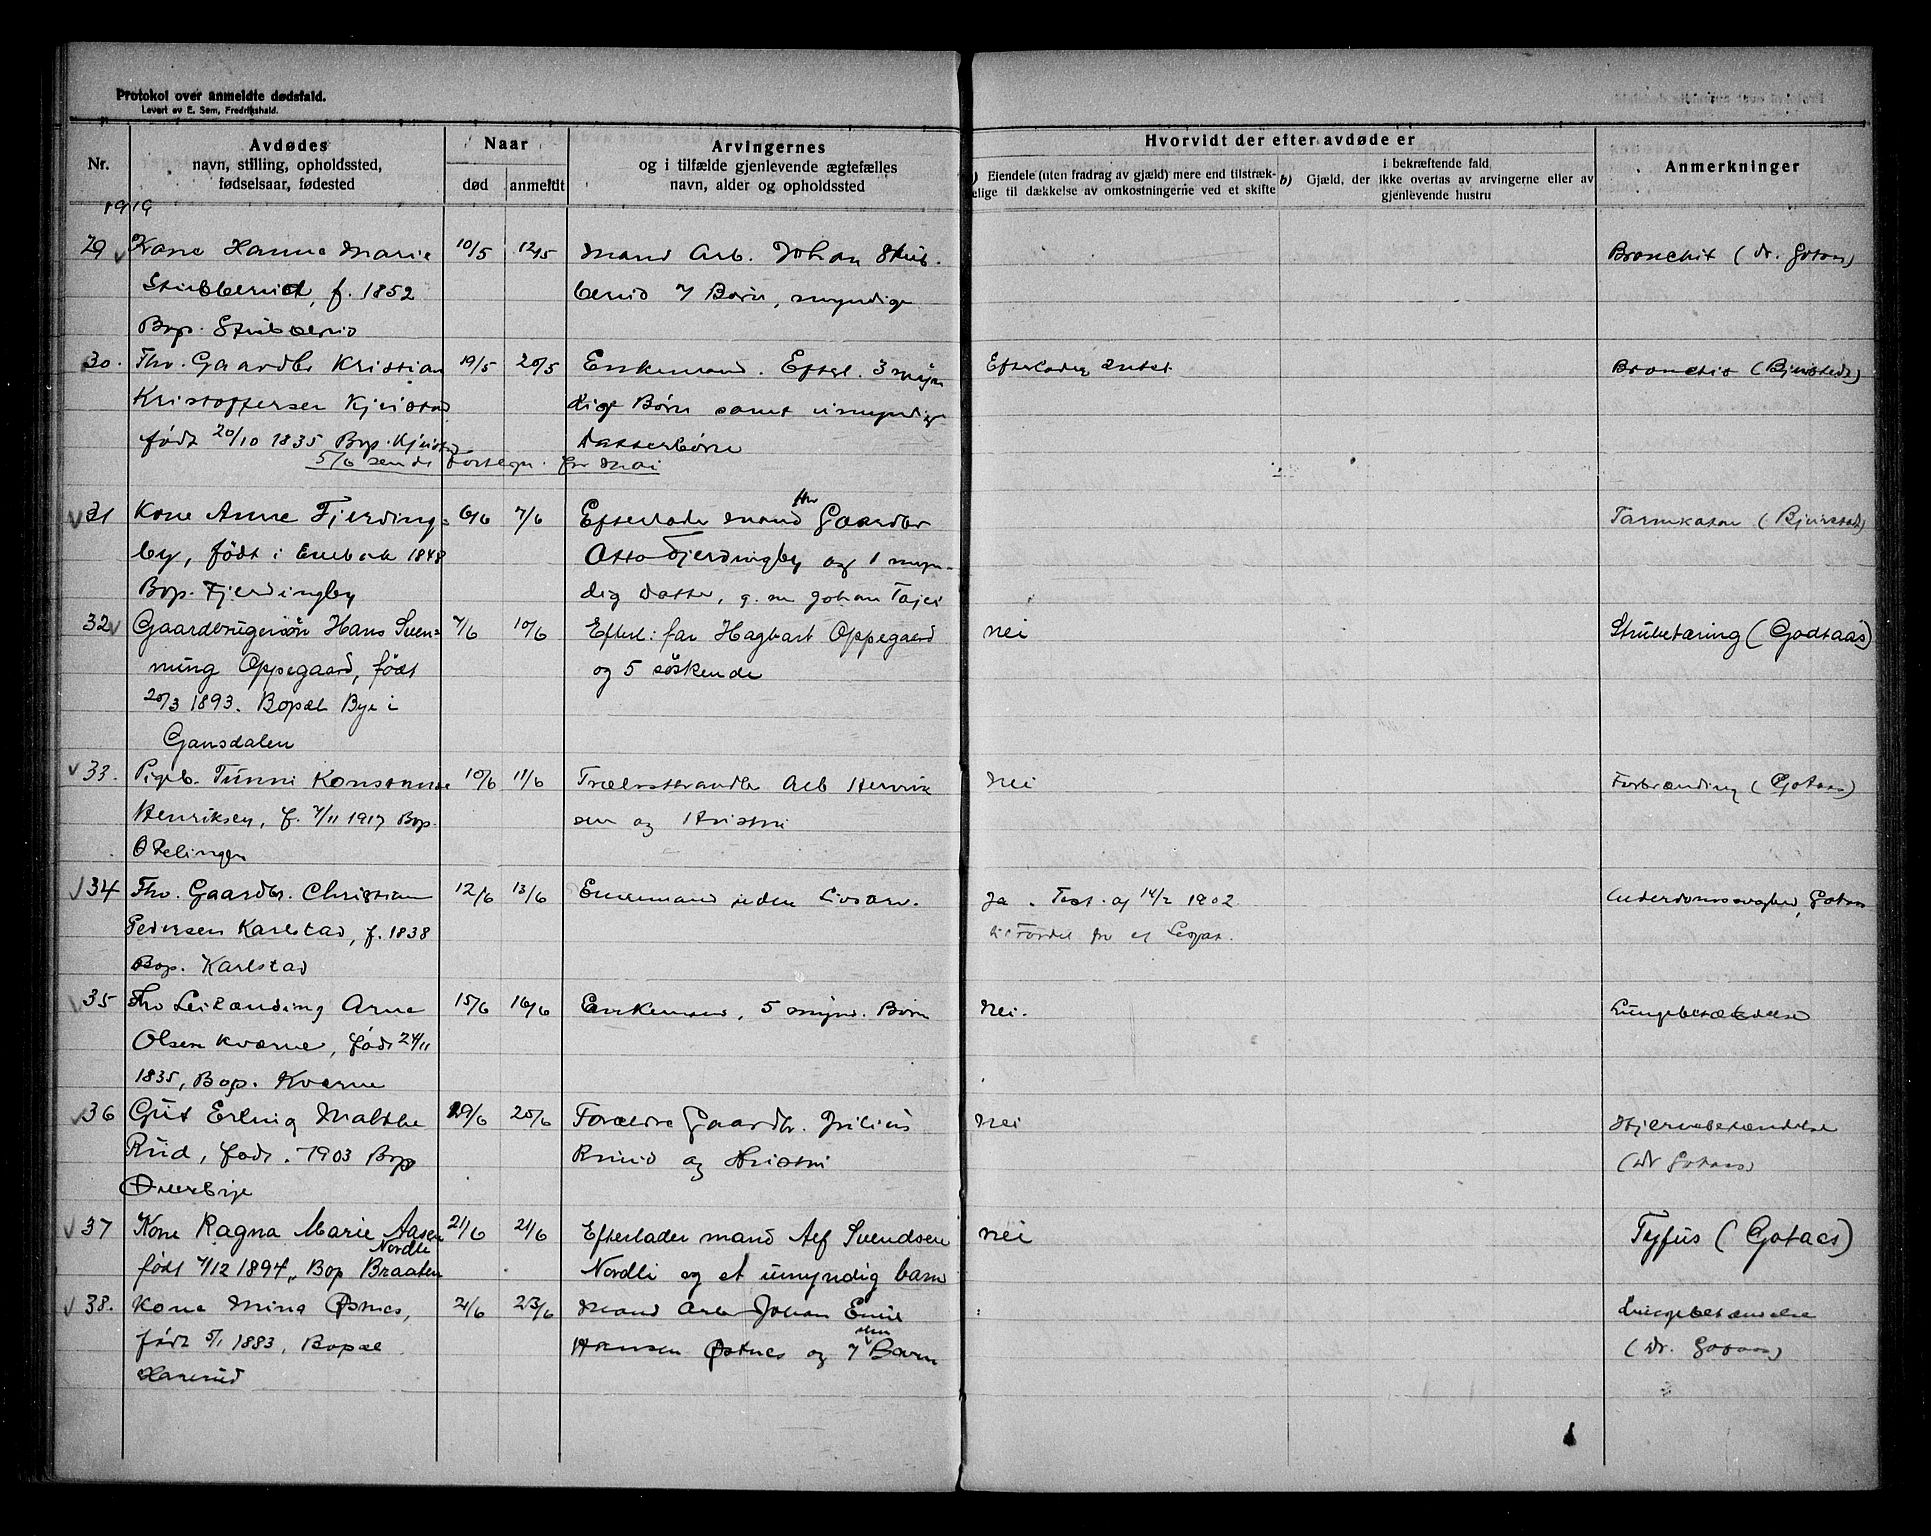 Protokol over anmeldte dødsfald.
Levert av E. Sem, Fredrikshald.
Nr.
Avdødes
navn, stilling, opholdssted,
fødselsaar, fødested
Naar
død
anmeldt
Arvingernes
og i tilfælde gjenlevende ægtefælles
navn, alder og opholdssted
Hvorvidt der efter avdøde er
a) Eiendele (uten fradrag av gjæld) mere end tilstræk-
kelige til dækkelse av omkostningerne ved et skifte
b) Gjæld, der i bekræftende fald, ikke overtas av arvingerne eller av
gjenlevende hustru
Anmerkninger
1919
29 Kone Hanna Marie 10/5 12/5 Mand Arb. Johan Stub- Bronchit (Dr. Gotaas)
Stubberud, f. 1852 berud 7 Børn, myndige
Bop. Stubberud
30. Fhv. Gaardbr Kristian 19/5 20/5 Enkemand. Efterl. 3 myn Efterlader intet Bronchit (Bjursted)
Kristoffersen Kjurstad dige Børn samt umyndige
født 20/10 1835 Bop. Kjurstad datterbørn
5/6 sendt Fortegn. for Mai
31 Kone Anne Fjerding= 6/6 7/6 Efterlader mand fhv Gaardbr Tarmkatar (Bjursted)
by, født i Enebak 1848 Otto Fjerdingby og 1 myn-
Bop. Fjerdingby dig datter, g. m Johan
32 Gaardbrugersøn Hans Sven= 7/6 10/6 Efterl: far Hagbart Oppegaard nei Strubetæring (Godtaas)
ning Oppegaard, født og 5 søskende
20/3 1893. Bopæl Bye i
Gansdalen
33. Pigeb. Tunni 10/6 11/6 Arb Henrik Nei Forbrænding (Gotaas)
Henriksen, f. 7/11 1917 Bop. sen og Kristin
34 Fhv. Gaardbr. Christian 12/6 13/6 Enkemand uden Livsarv. Ja. Test. af 14/2 1902 Alderdomssvaghed, Gotaas
Pedersen Karlstad, f. 1838 til Fordel for et Legat.
Bop. Karlstad
35 Fhv Leilænding Arne 15/6 16/6 Enkemand, 5 mynd. Børn Nei. Lungebetændelse
Olsen Kværne, født 24/11
1835, Bop. Kværne
36 Gut Erling Malthe 19/6 20/6 Forældre Gaardbr. Julius Nei Hjernebetændelse
Rud, født. 1903 Bop Ruud og Kristin (Dr Gotaas)
Øverbye
37 Kone Ragna Marie Aasen 21/6 21/6 Efterlader mand Alf Svendsen nei Tyfus (Gotaas)
Nordli
født 7/12 1894, Bop Braaten Nordli og et umyndig barn
38. Kone Mina Østnes, 21/6 23/6 Mand Arb Johan Emil Lungebetændelse
født 5/1 1883, Bopæl Hansen Østnes og 7 Børn (Dr. Gotaas)